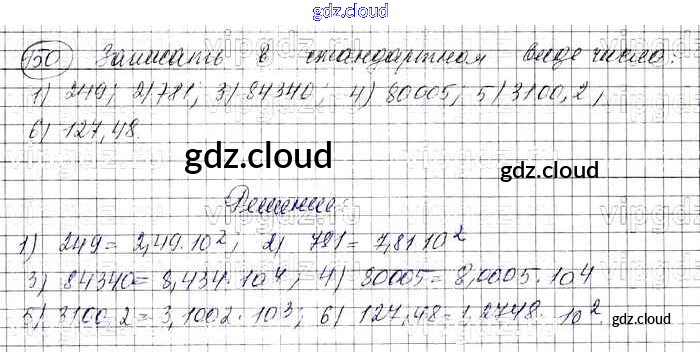 gdz.cloud
150) Записать в стандартном виде число:
1) 249; 2) 781; 3) 84340; 4) 80005; 5) 3100,2;
6) 127,48.
gdz.cloud
gdz.cloud
Решение:
1) 249 = 2,49·10²; 2) 781 = 7,81 10²
3) 84340 = 8,434·10⁴; 4) 80005 = 8,0005·10⁴
5) 3100,2 = 3,1002·10³; 6) 127,48 = 1,2748·10².
gdz.cloud